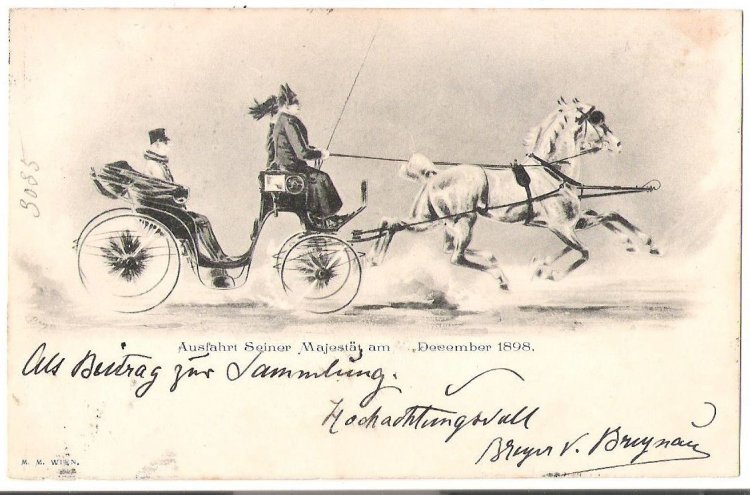 3085
Ausfahrt Seiner Majestät am December 1898.
Als Beitrag zur Sammlung.
Hochachtungsvoll
v. Breynau
M. M. WIEN.